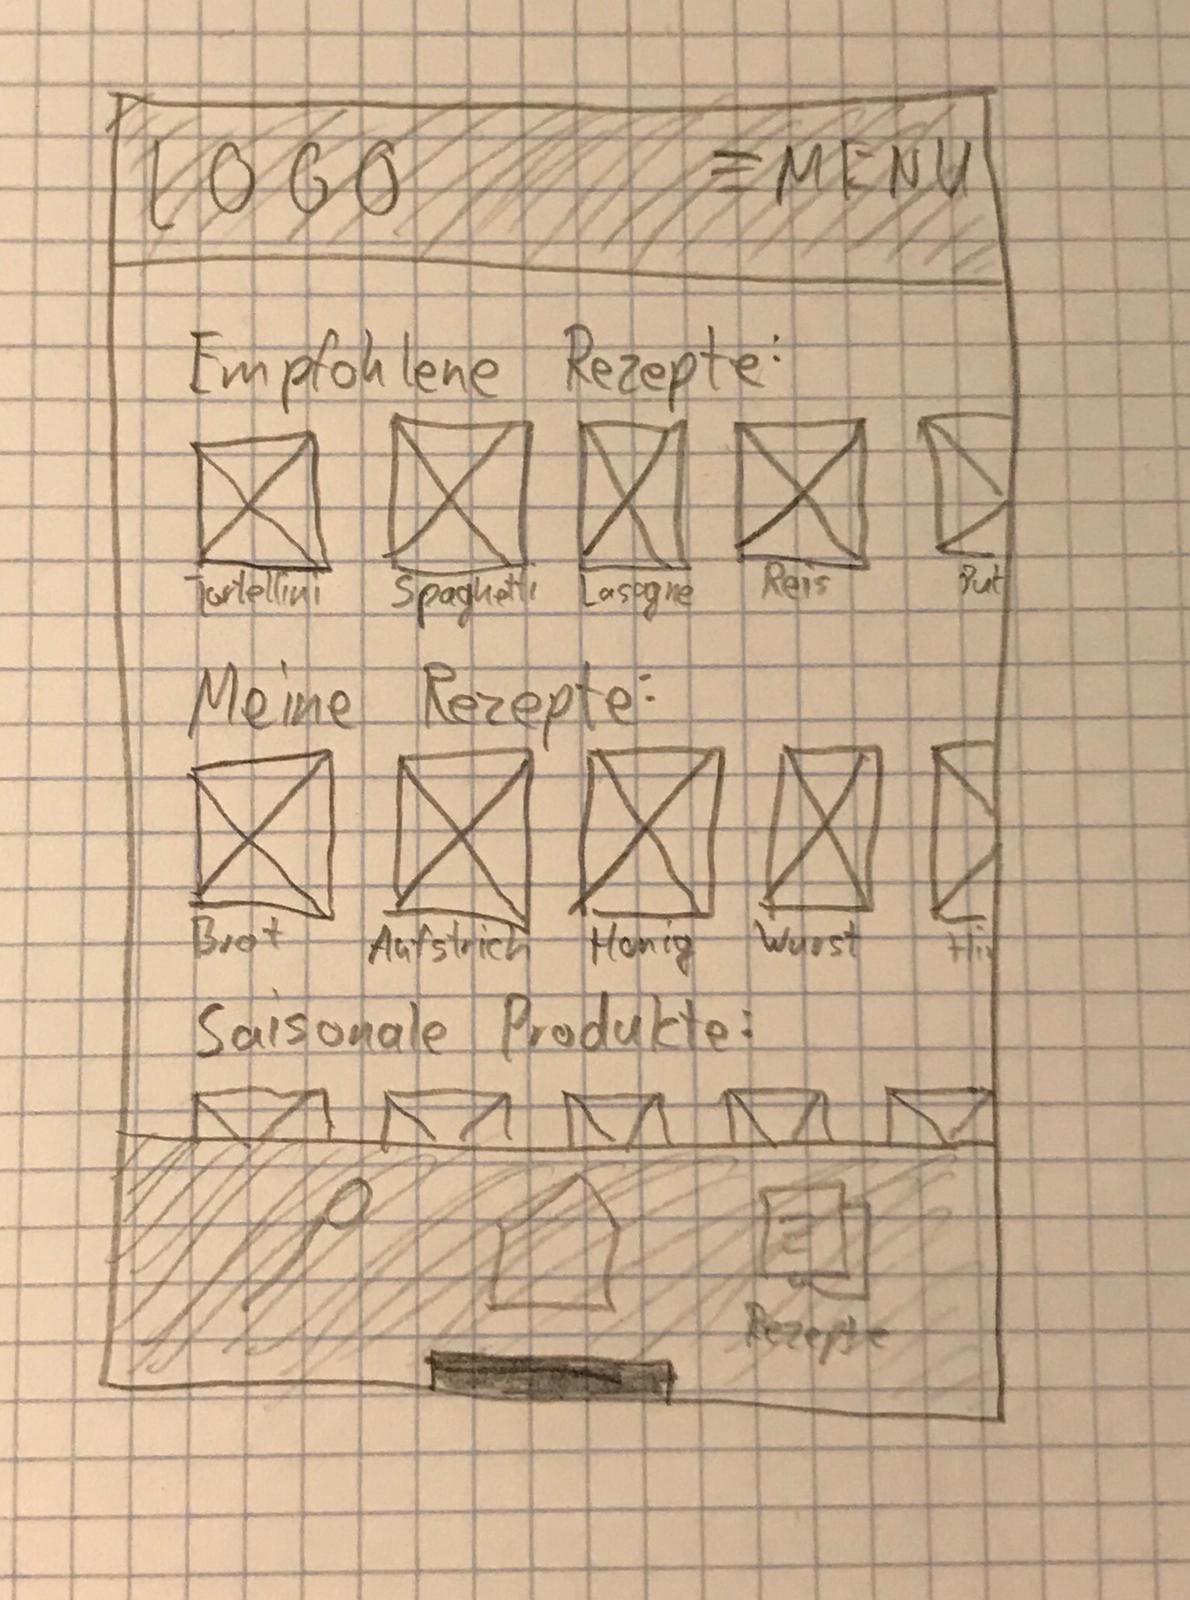 LOGO ≡ MENU
Empfohlene Rezepte:
Tortellini Spaghetti Lasagne Reis Put
Meine Rezepte:
Brot Aufstrich Honig Wurst
Saisonale Produkte:
Rezepte